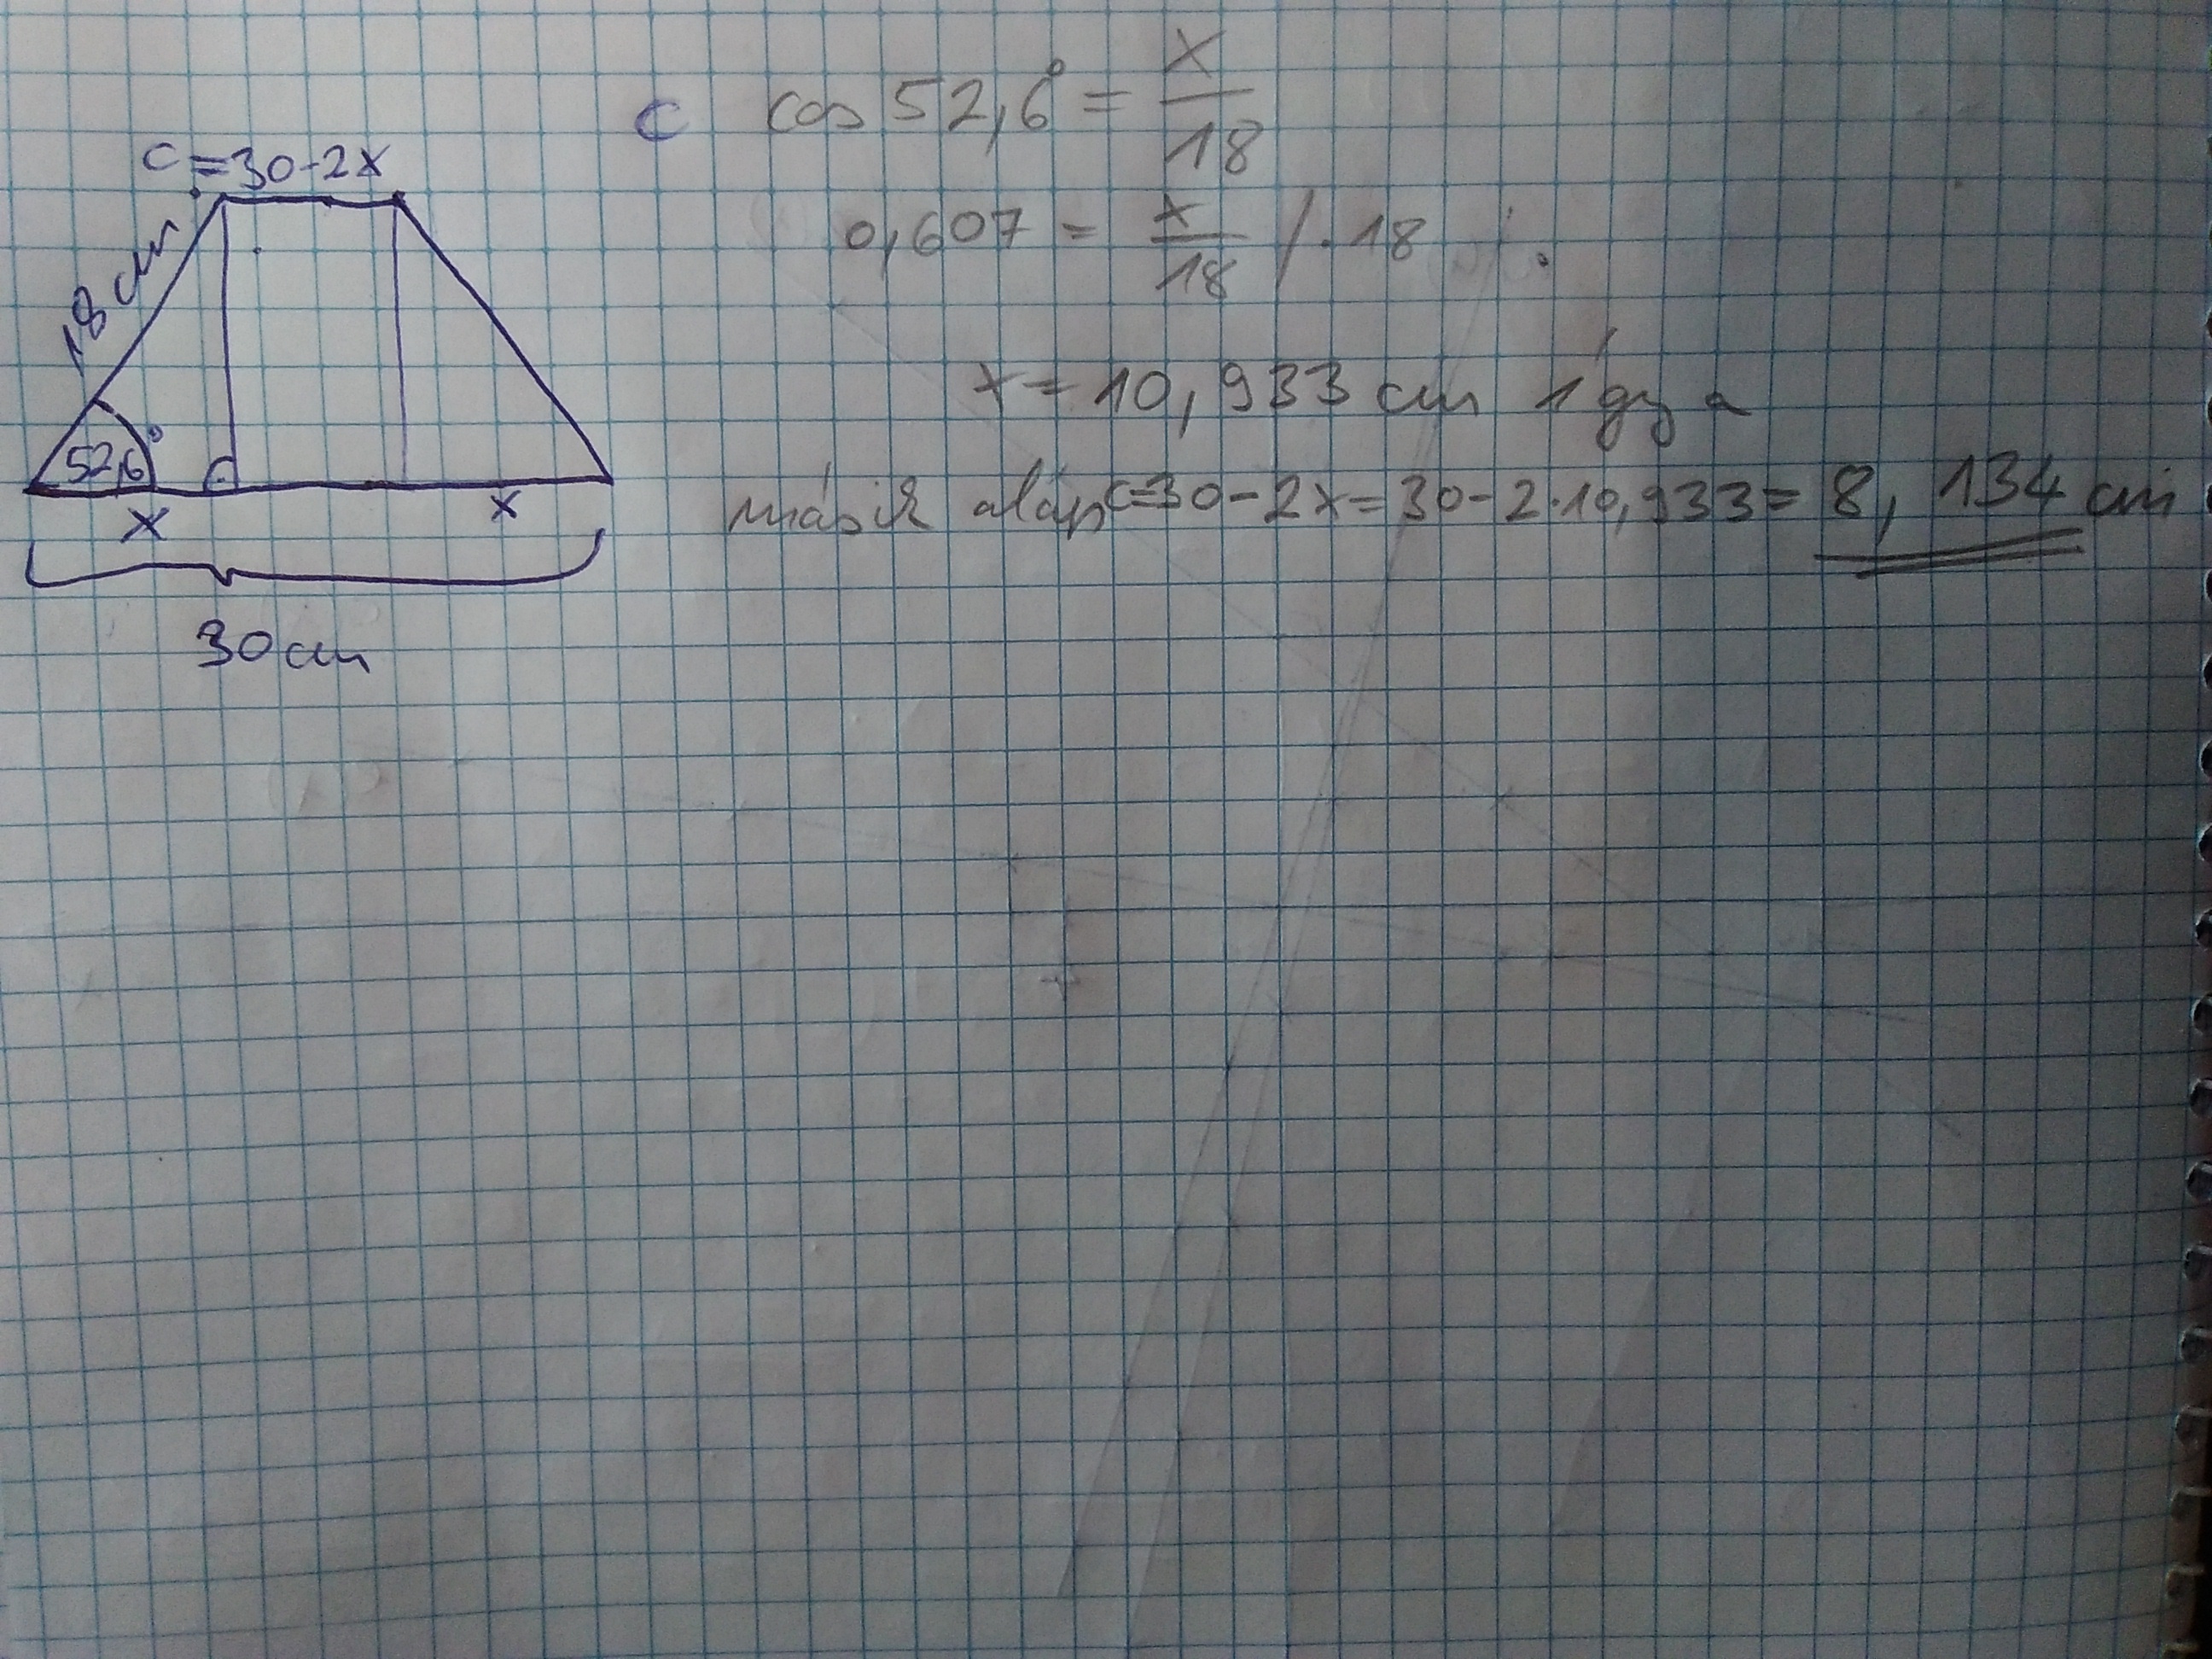 c = 30-2x
18 cm
52,6°
x
x
30 cm
c cos 52,6° = x/18
0,607 = x/18 /·18
x = 10,933 cm Így a
másik alap c=30-2x=30-2·10,933= 8,134 cm